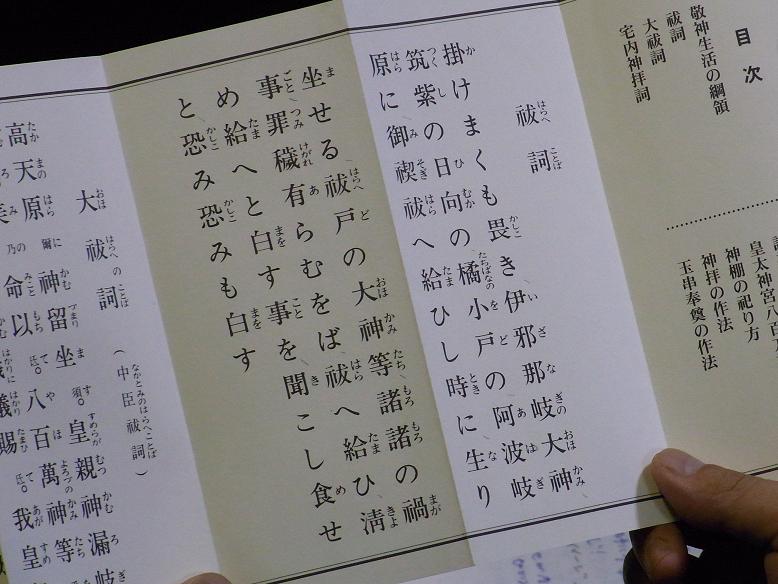 目次
敬神生活の綱領
祓詞
大祓詞
宅内神拝詞
皇太神宮八百万
神棚の祀り方
神拝の作法
玉串奉奠の作法
祓詞
掛けまくも畏き伊邪那岐大神
筑紫の日向の橘小戸の阿波岐
原に御禊祓へ給ひし時に生り
坐せる祓戸の大神等諸諸の禍
事罪穢有らむをば祓へ給ひ淸
め給へと白す事を聞こし食せ
と恐み恐みも白す
大祓詞（中臣祓詞）
高天原爾神留坐須。皇親神漏岐
美乃命以氐。八百萬神等
議賜氐。我皇